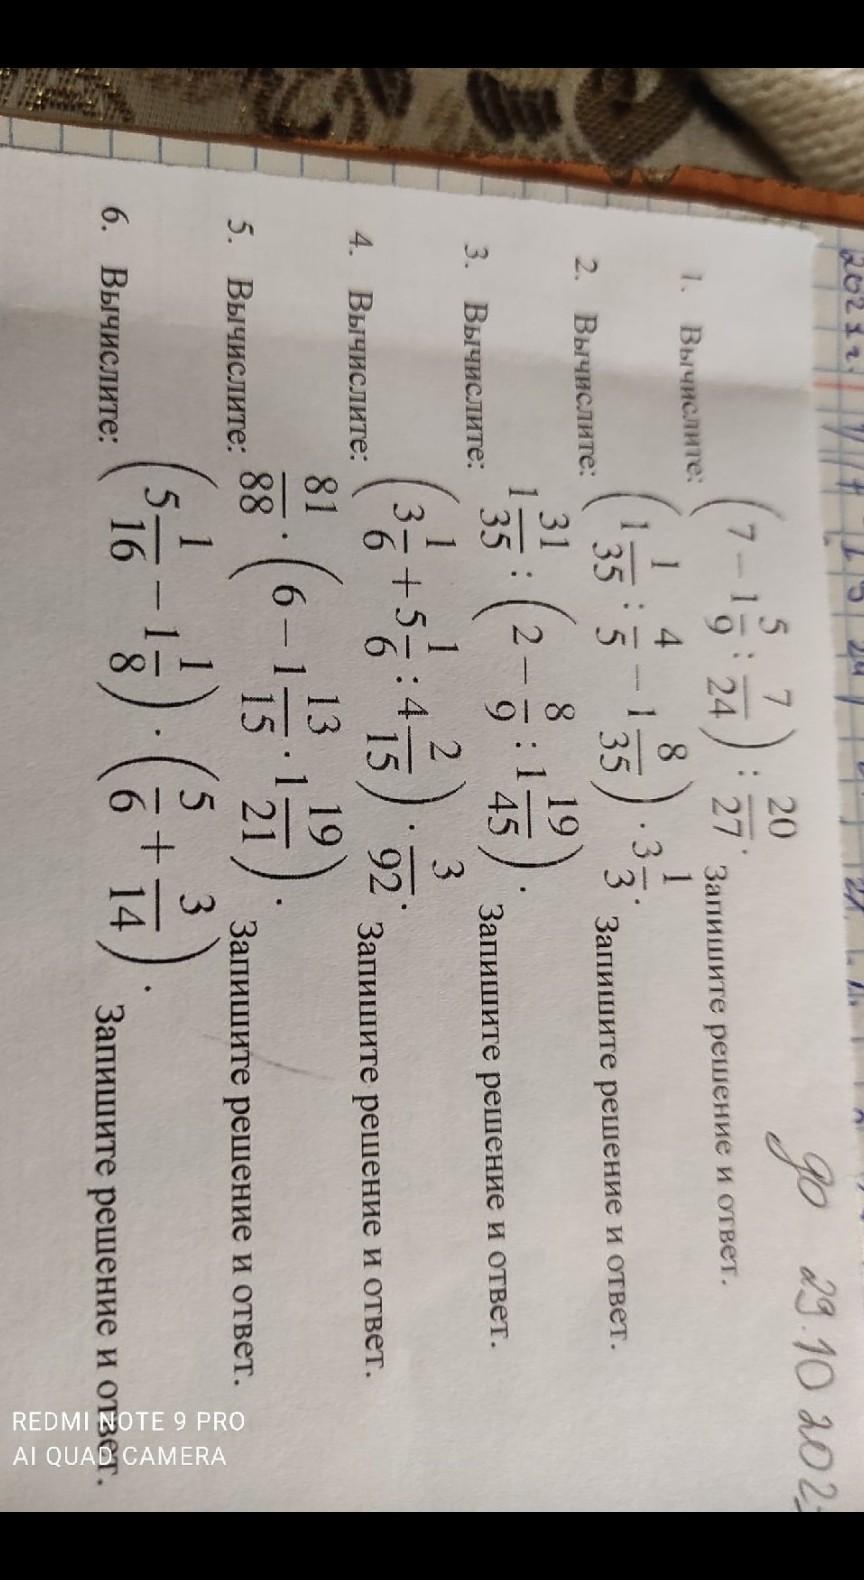 до 29.10 202
1. Вычислите: (7 − 1 5/9 : 7/24) : 20/27. Запишите решение и ответ.
2. Вычислите: (1 1/35 : 4/5 − 1 8/35) · 3 1/3. Запишите решение и ответ.
3. Вычислите: 1 31/35 : (2 − 8/9 : 1 19/45). Запишите решение и ответ.
4. Вычислите: (3 1/6 + 5 1/6 : 4 2/15) · 3/92. Запишите решение и ответ.
5. Вычислите: 81/88 · (6 − 1 13/15 · 1 19/21). Запишите решение и ответ.
6. Вычислите: (5 1/16 − 1 1/8) · (5/6 + 3/14). Запишите решение и ответ.
REDMI NOTE 9 PRO
AI QUAD CAMERA